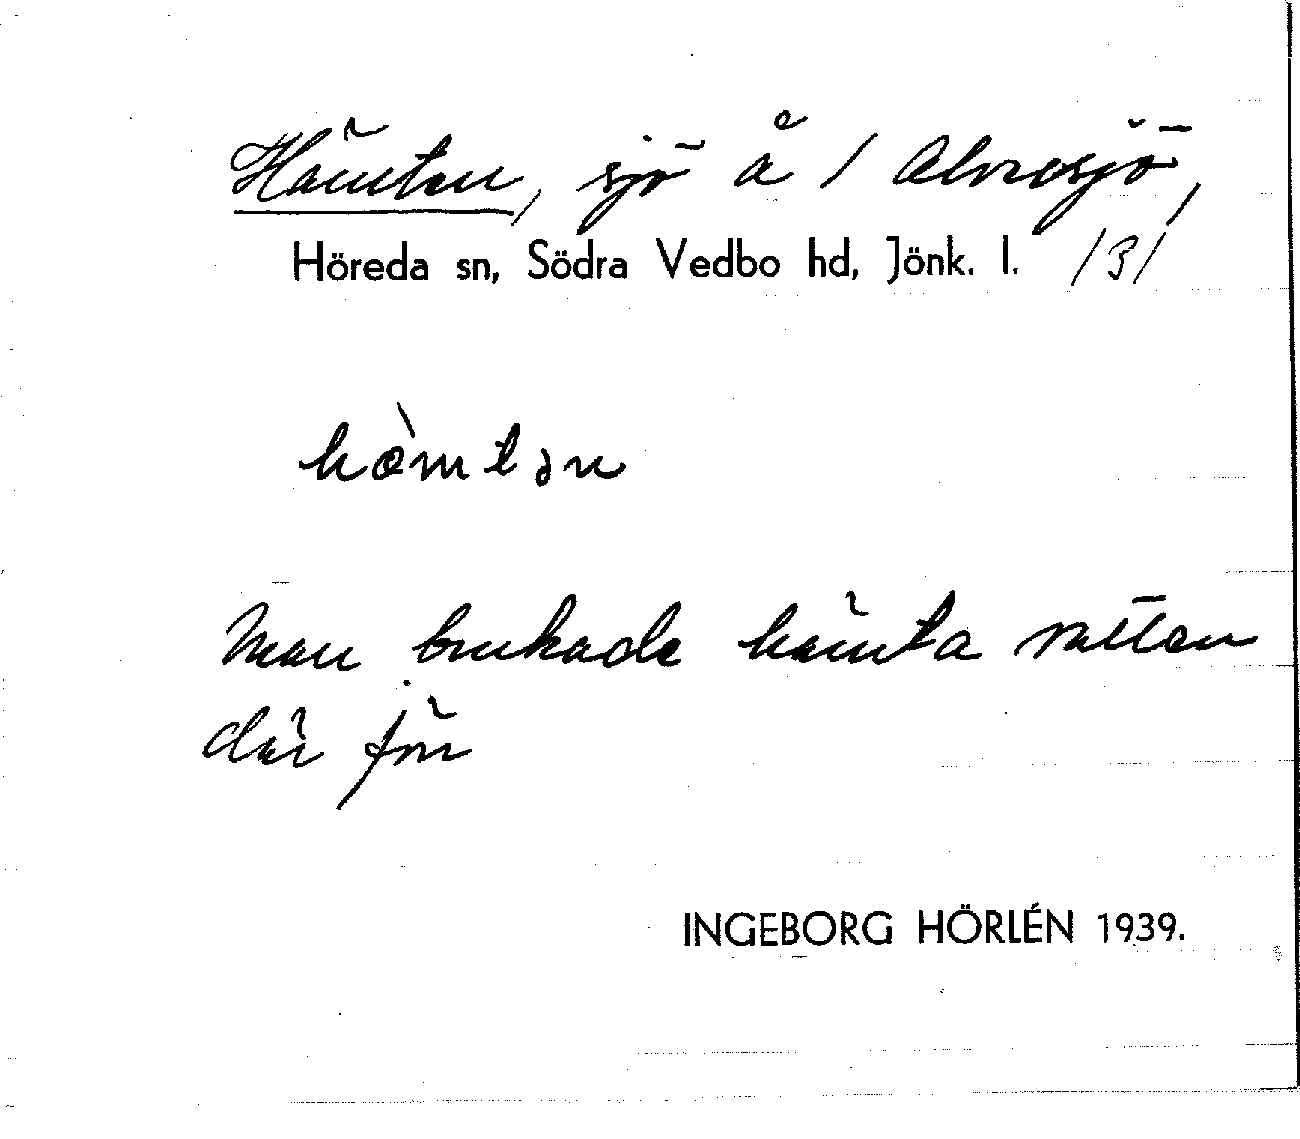 Hämten, sjö å 1 Alvesjö,
Höreda sn, Södra Vedbo hd, Jönk. l. /3/
hæ̀mtən
Man brukade hämta vatten
där för
INGEBORG HÖRLÉN 1939.